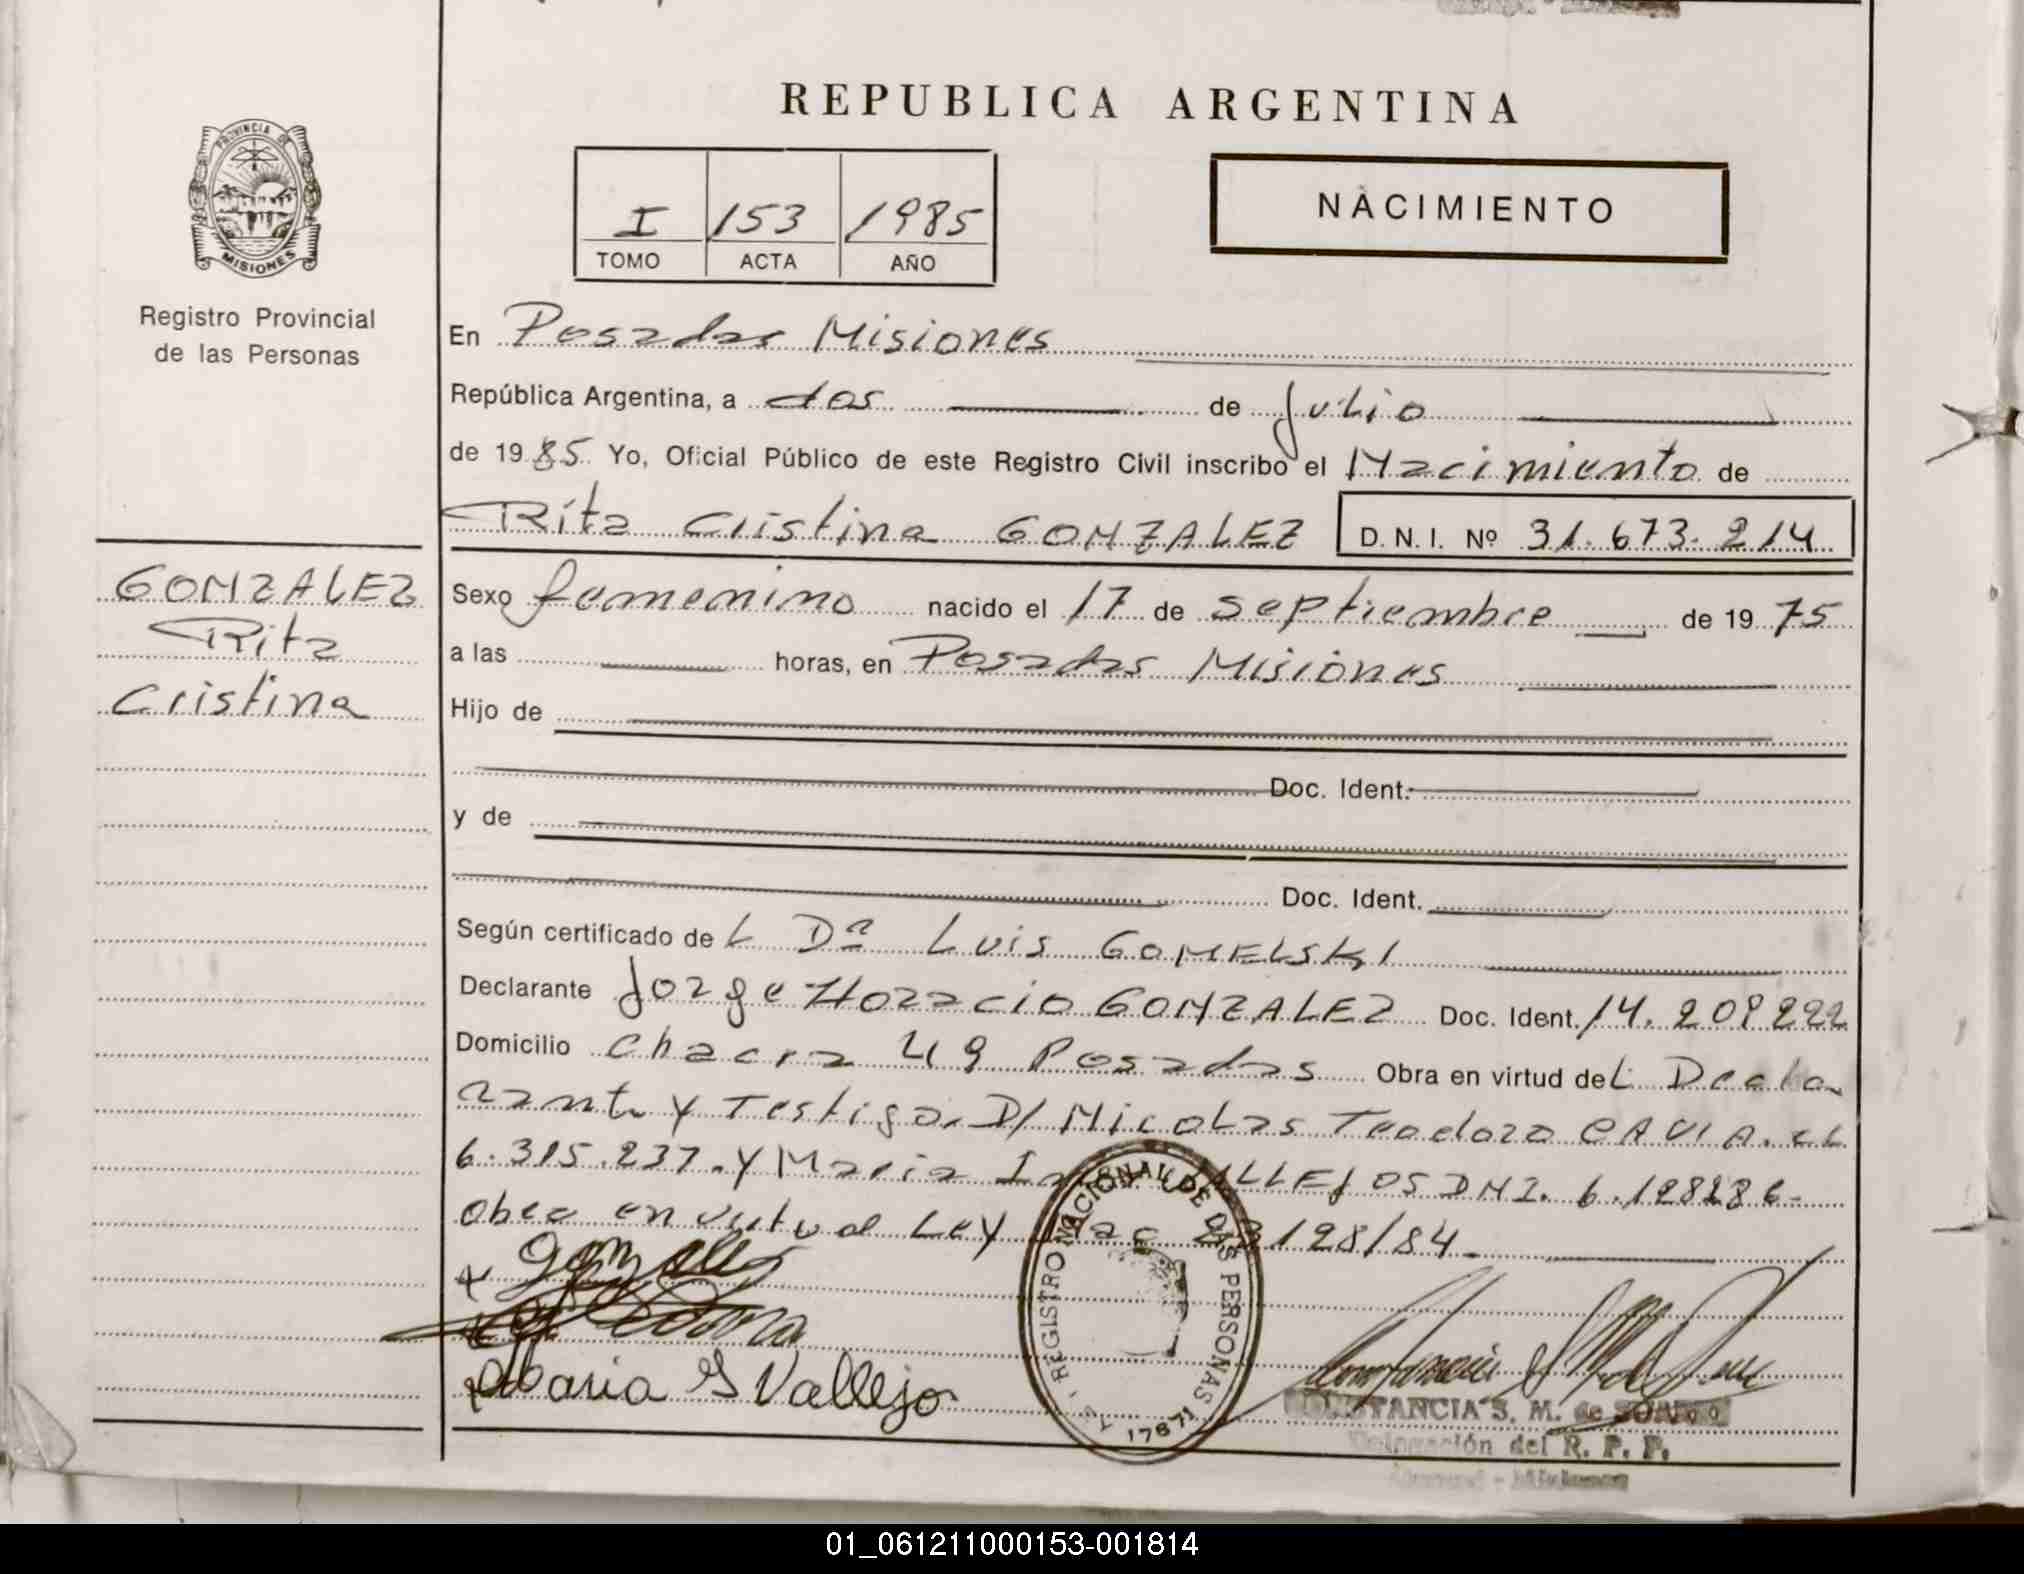 REPUBLICA ARGENTINA
PROVINCIA DE
MISIONES
Registro Provincial
de las Personas
I 153 1985
TOMO ACTA AÑO
NACIMIENTO
En Posadas Misiones
República Argentina, a dos de Julio
de 1985 Yo, Oficial Público de este Registro Civil inscribo el Nacimiento de
Rita Cristina GONZALEZ D.N.I. Nº 31.673.214
GONZALEZ
Rita
Cristina
Sexo femenino nacido el 17 de septiembre de 1975
a las horas, en Posadas Misiones
Hijo de
Doc. Ident.
y de
Doc. Ident.
Según certificado de L Dº Luis GOMELSKI
Declarante Jorge Horacio GONZALEZ Doc. Ident. 14.209222
Domicilio Chacra 49 Posadas Obra en virtud del Decla
rante y Testigo. D/ Nicolas Teodoro CAVIA. CL
6.315.237. y Maria VALLEJOS DNI. 6.128186-
Obra en virtud Ley Nac 23128/84
Gonzalez
Maria G Vallejo
REGISTRO NACIONAL DE LAS PERSONAS
17671
CONSTANCIA S. M. de
Delegación del R. P. P.
01_061211000153-001814